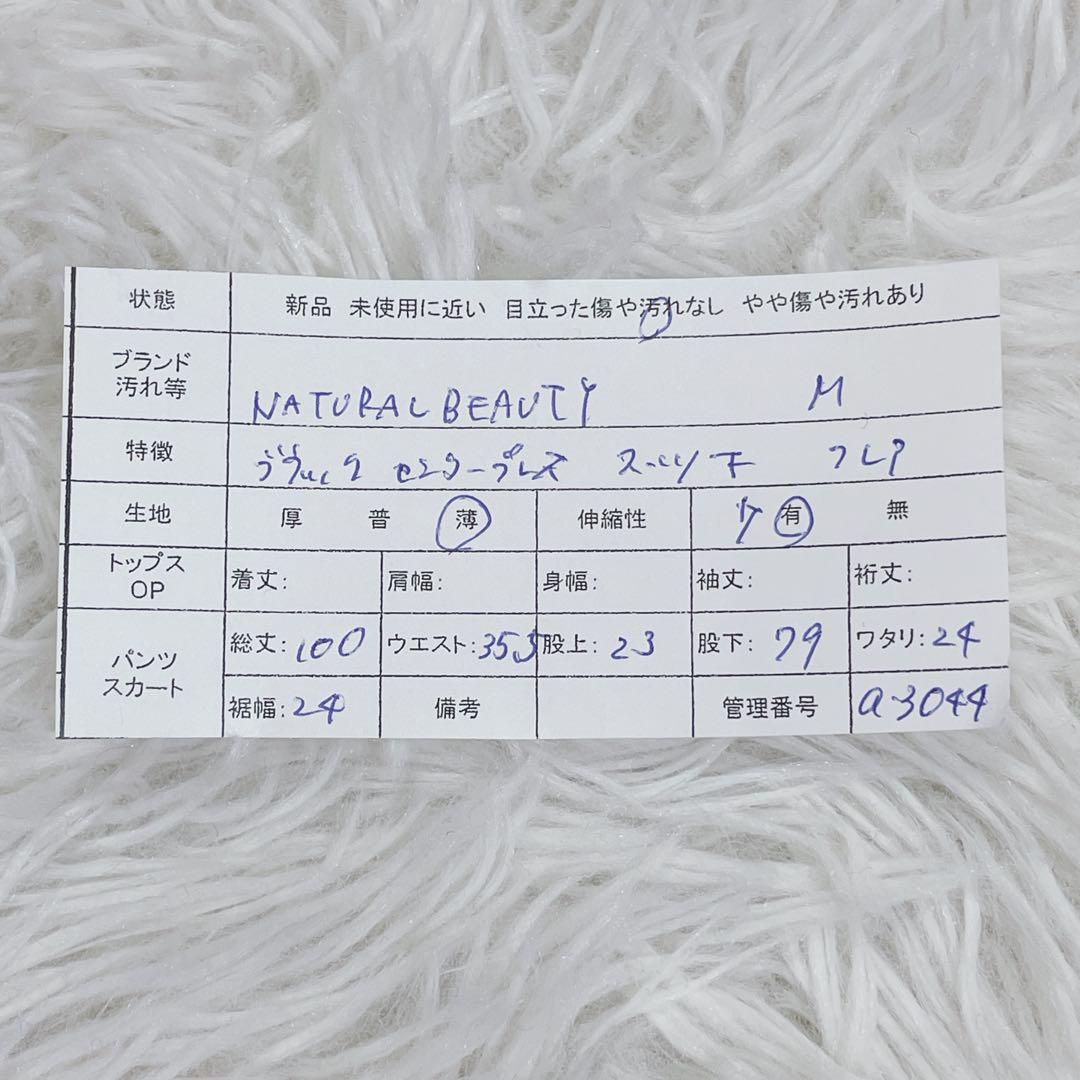 状態 新品 未使用に近い 目立った傷や汚れなし やや傷や汚れあり
ブランド
汚れ等 NATURAL BEAUTY M
特徴 センタープレス フレア
生地 厚 普 薄 伸縮性 有 無
トップス
OP 着丈: 肩幅: 身幅: 袖丈: 裄丈:
パンツ
スカート 総丈:100 ウエスト:35.5 股上:23 股下:79 ワタリ:24
裾幅:24 備考 管理番号 a3044